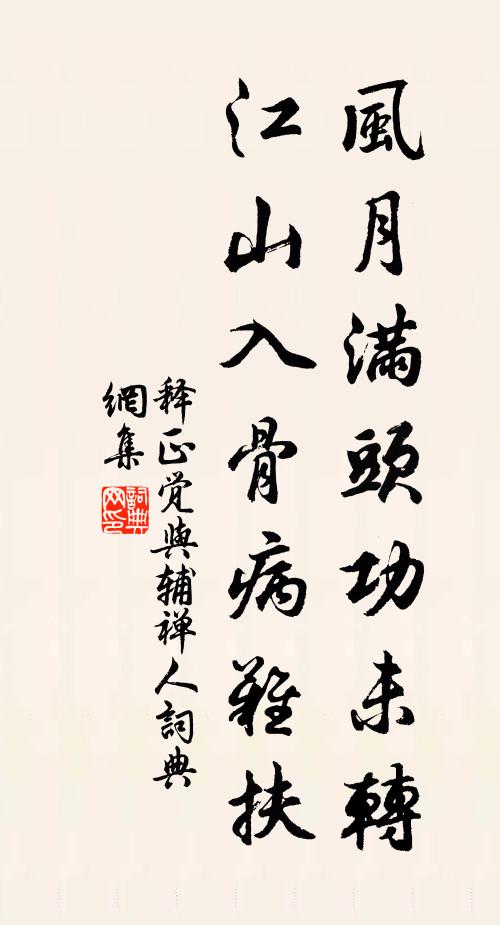 風月滿頭功未轉
江山入骨病難扶
释正觉與辅禅人詞典
網集
詞典
网印